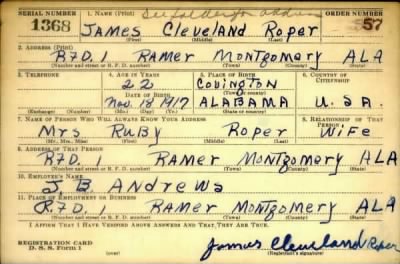 SERIAL NUMBER 1. NAME (Print) See folder for ORDER NUMBER
1368 James Cleveland Roper 57
(First) (Middle) (Last)
2. ADDRESS (Print)
R7D. 1 Ramer Montgomery ALA
(Number and street or R. F. D. number) (Town) (County) (State)
3. TELEPHONE 4. AGE IN YEARS 5. PLACE OF BIRTH 6. COUNTRY OF CITIZENSHIP
22 Covington
DATE OF BIRTH (Town or county)
Nov. 18 1917 ALABAMA U.S.A.
(Exchange) (Number) (Mo.) (Day) (Yr.) (State or country)
7. NAME OF PERSON WHO WILL ALWAYS KNOW YOUR ADDRESS 8. RELATIONSHIP OF THAT PERSON
Mrs Ruby Roper Wife
(Mr., Mrs., Miss) (First) (Middle) (Last)
9. ADDRESS OF THAT PERSON
R7D. 1 Ramer Montgomery ALA
(Number and street or R. F. D. number) (Town) (County) (State)
10. EMPLOYER'S NAME
J. B. Andrews
11. PLACE OF EMPLOYMENT OR BUSINESS
R7D. 1 Ramer Montgomery ALA
(Number and street or R. F. D. number) (Town) (County) (State)
I AFFIRM THAT I HAVE VERIFIED ABOVE ANSWERS AND THAT THEY ARE TRUE.
REGISTRATION CARD James Cleveland Roper
D. S. S. Form 1 (over) (Registrant's signature)